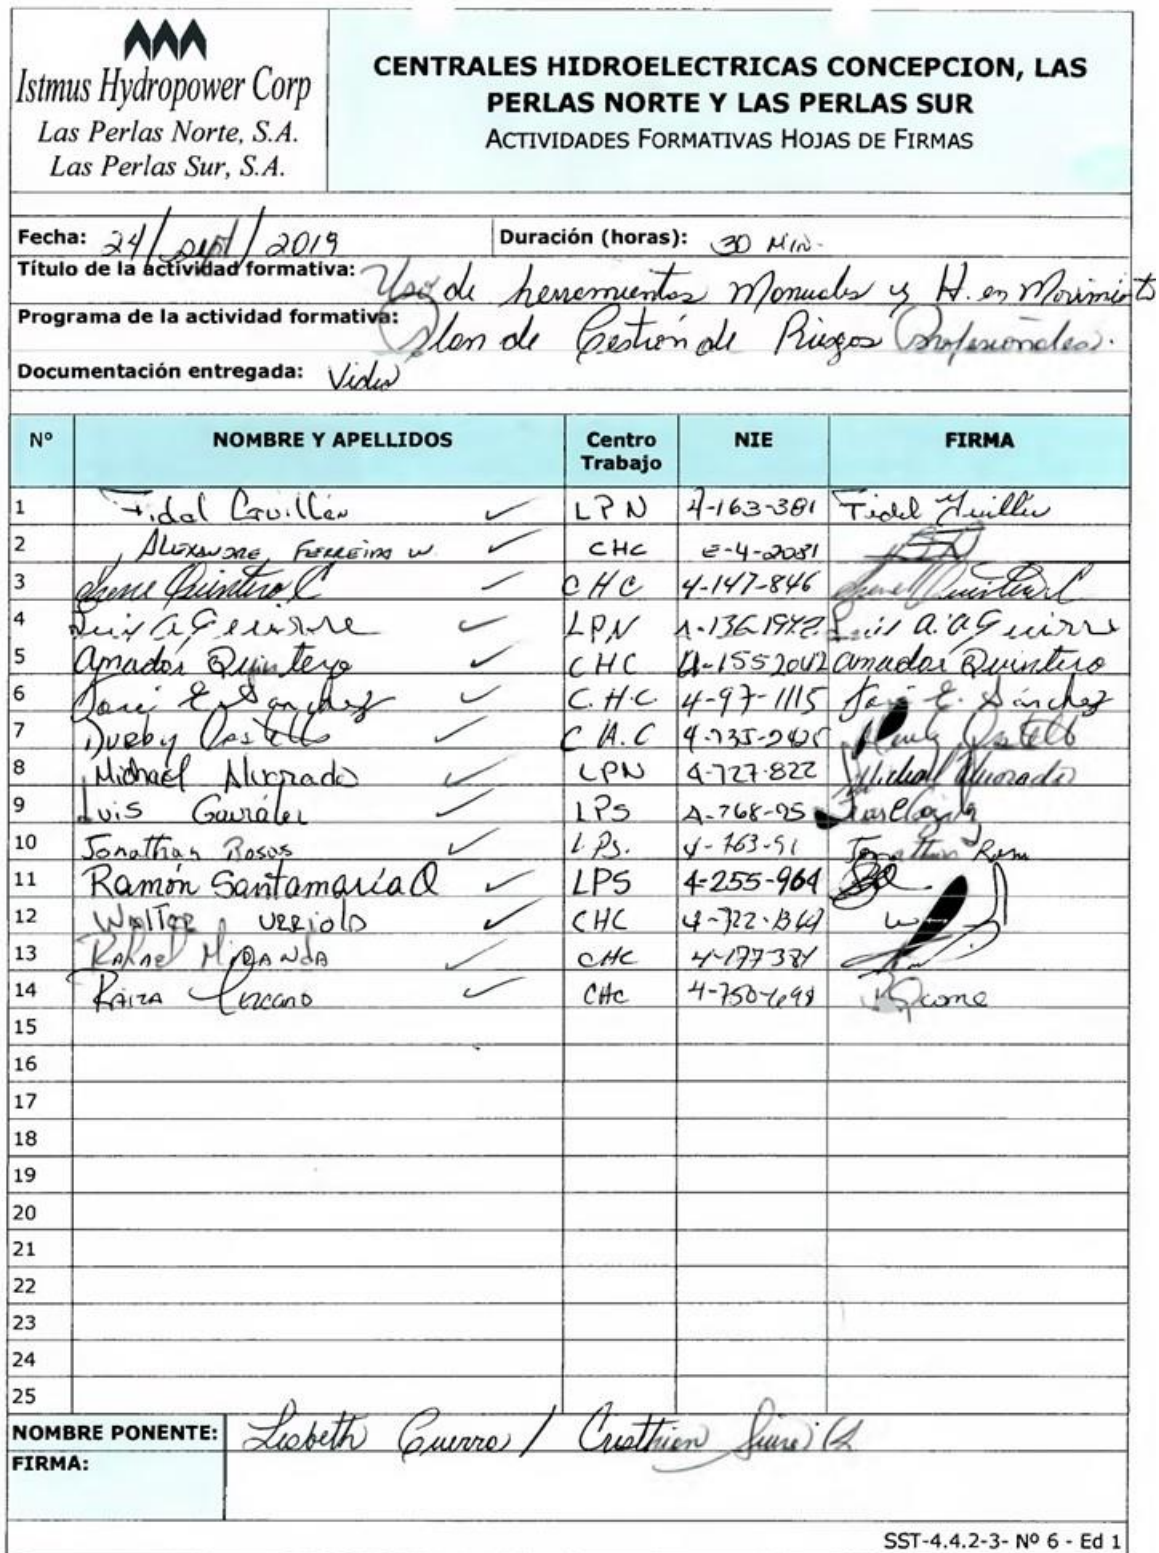 Istmus Hydropower Corp
Las Perlas Norte, S.A.
Las Perlas Sur, S.A.
CENTRALES HIDROELECTRICAS CONCEPCION, LAS
PERLAS NORTE Y LAS PERLAS SUR
ACTIVIDADES FORMATIVAS HOJAS DE FIRMAS
Fecha: 24/sept/2019 Duración (horas): 30 Min.
Título de la actividad formativa: Uso de herramientas Manuales y H. en Movimiento
Programa de la actividad formativa: Plan de Gestión de Riesgos Profesionales.
Documentación entregada: Video
Nº NOMBRE Y APELLIDOS Centro Trabajo NIE FIRMA
1 Fidel Guillén LPN 4-163-381 Fidel Guillén
2 Alexandre Ferreira W. CHC E-4-2081
3 Quintero C CHC 4-147-846 Quintero C
4 Luis A Aguirre LPN Luis A. Aguirre
5 Amador Quintero CHC Amador Quintero
6 José E. Sánchez C.H.C 4-97-1115 José E. Sánchez
7 C.H.C
8 Michael Alvarado LPN 4-727-822 Michael Alvarado
9 Luis LPS
10 Jonathan Rosas LPS. 4-763-91 Jonathan
11 Ramón Santamaría Q LPS 4-255-964
12 Walter Urriola CHC
13 Rafael Miranda CHC
14 Raiza CHC
15
16
17
18
19
20
21
22
23
24
25
NOMBRE PONENTE: Lisbeth Guerra / Cristhian
FIRMA:
SST-4.4.2-3- Nº 6 - Ed 1